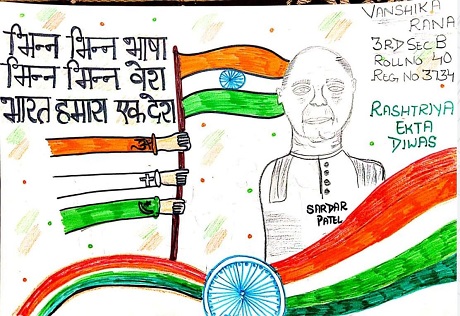 भिन्न भिन्न भाषा
भिन्न भिन्न वेश
भारत हमारा एक देश
VANSHIKA
RANA
3RD SEC B
ROLL NO 40
REG. NO 3734
RASHTRIYA
EKTA
DIWAS
SARDAR
PATEL